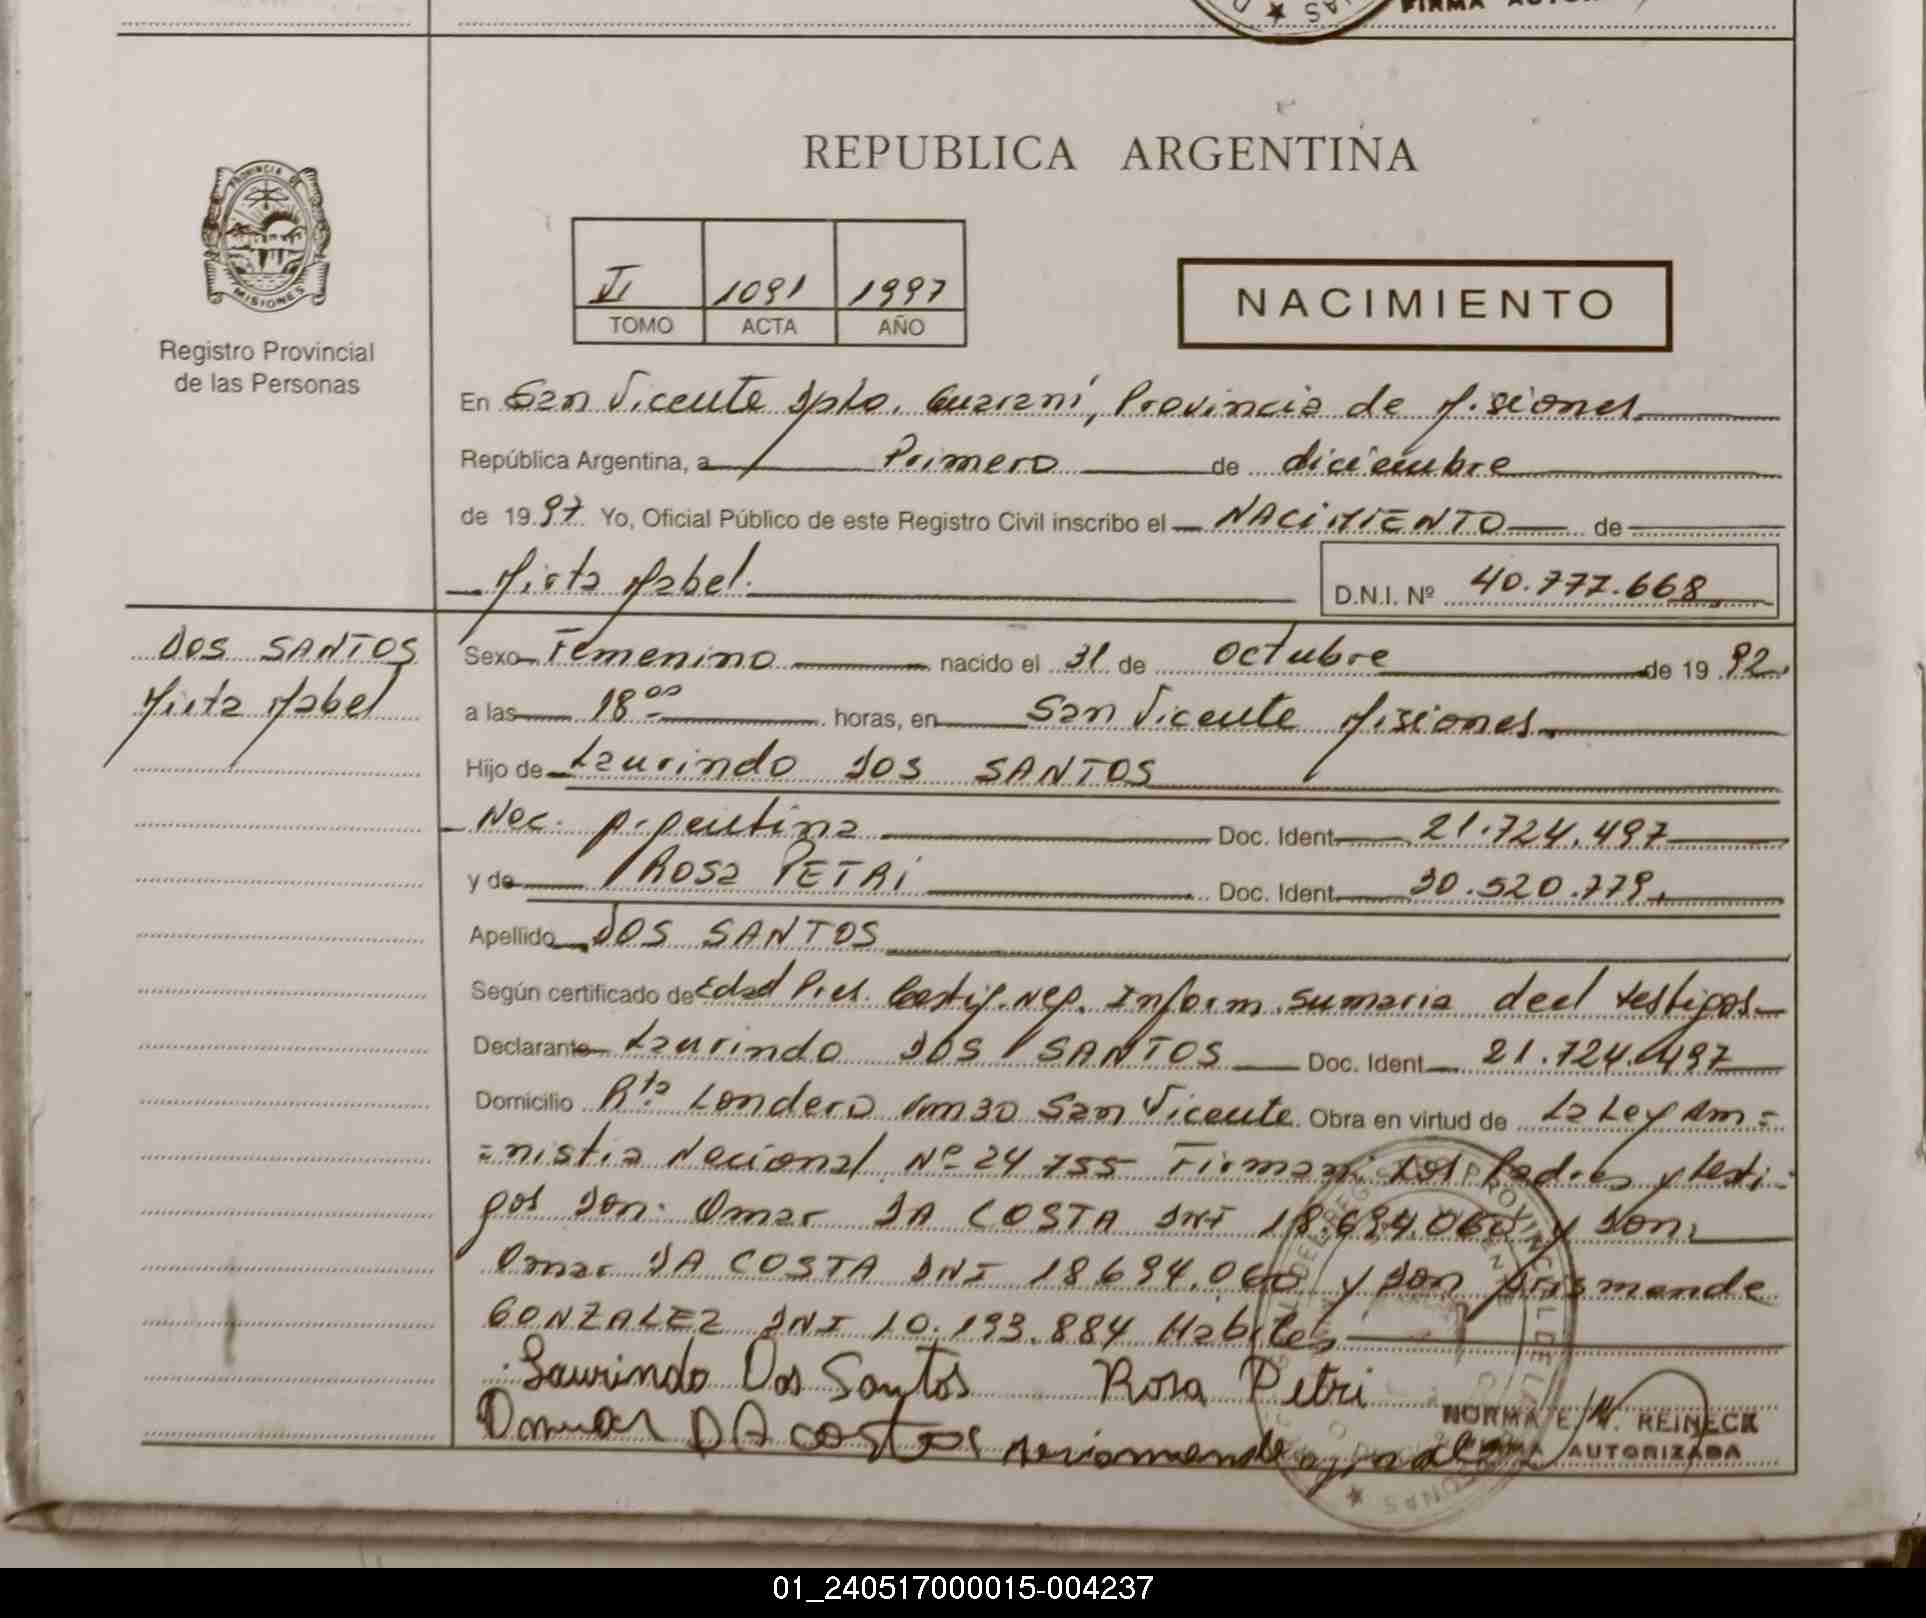 FIRMA
REPUBLICA ARGENTINA
PROVINCIA DE
MISIONES
Registro Provincial
de las Personas
VI 1091 1997
TOMO ACTA AÑO
NACIMIENTO
En San Vicente Dpto. Guaraní, Provincia de Misiones
República Argentina, a Primero de diciembre
de 1997 Yo, Oficial Público de este Registro Civil inscribo el NACIMIENTO de
Mirta Mabel.
D.N.I. Nº 40.777.668
DOS SANTOS
Mirta Mabel
Sexo Femenino nacido el 31 de Octubre de 1992.
a las 18 00 horas, en San Vicente Misiones.
Hijo de Laurindo DOS SANTOS
Nac. Argentina Doc. Ident. 21.724.497
y de Rosa PETRI Doc. Ident. 30.520.779.
Apellido DOS SANTOS
Según certificado de Edad Pres. Certif. Neg. Inform. sumaria decl testigos
Declarante Laurindo DOS SANTOS Doc. Ident. 21.724.497
Domicilio Rta Londero Km 30 San Vicente. Obra en virtud de La Ley Am=
=nistia Nacional Nº 24755 Firman: Los Padres y testi-
gos Don: Omar DA COSTA DNI 18.694.060 y Don
Omar DA COSTA DNI 18694.060 y Don Arismende
GONZALEZ DNI 10.193.884 Habiles
Laurindo Dos Santos Rosa Petri
Omar DA costa
NORMA E. N. REINECK
FIRMA AUTORIZADA
01_240517000015-004237